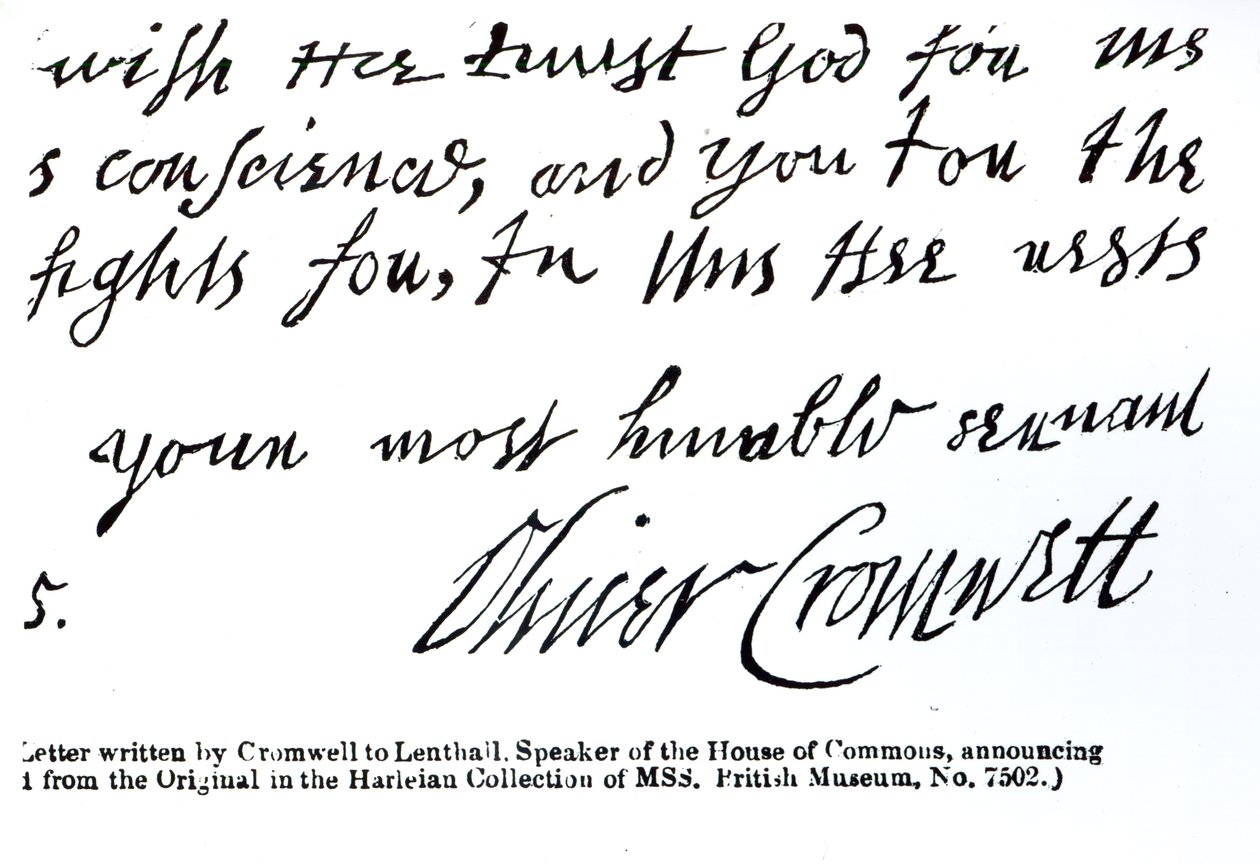 wish Hee trust God for the
s conscience, and you for the
fights for, In this Hee rests
your most humble servant
Oliver Cromwell
5.
Letter written by Cromwell to Lenthall, Speaker of the House of Commons, announcing
d from the Original in the Harleian Collection of MSS. British Museum, No. 7502.)